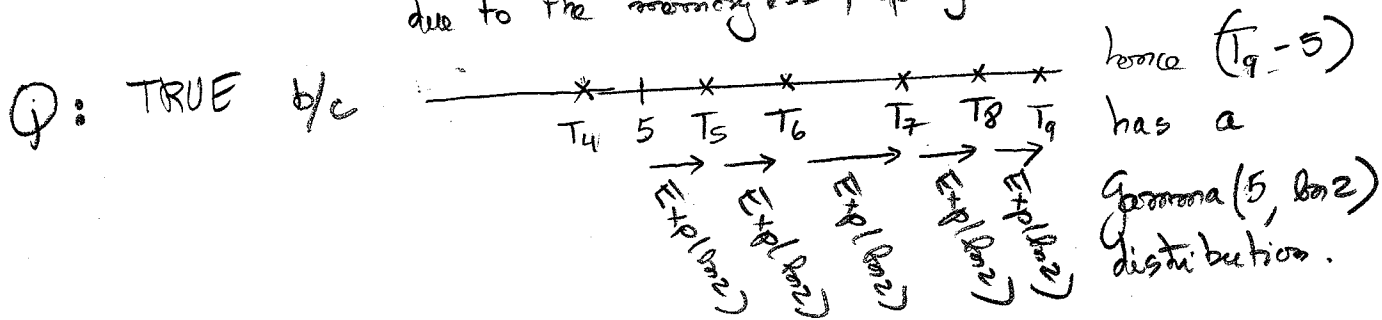 due to the
Q: TRUE b/c
T4 5 T5 T6 T7 T8 T9
Exp(ln2) Exp(ln2) Exp(ln2) Exp(ln2) Exp(ln2)
hence (T9-5)
has a
Gamma(5, ln2)
distribution.